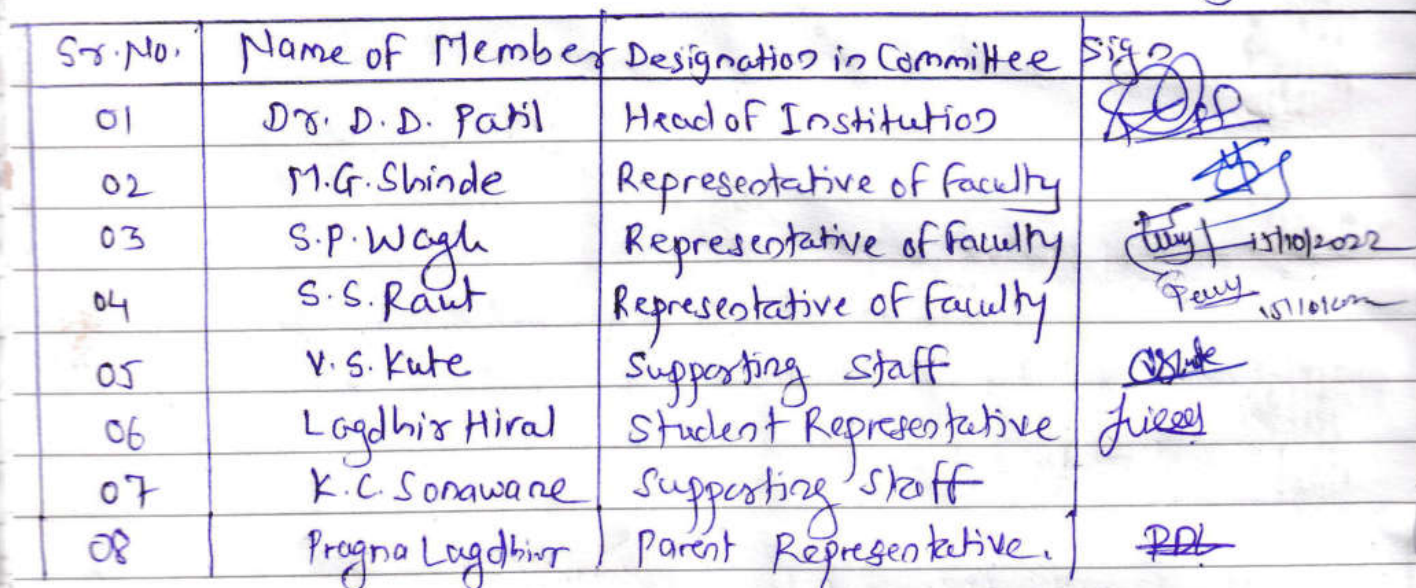 Sr. No. Name of Member Designation in Committee Sign
01 Dr. D. D. Patil Head of Institution
02 M.G. Shinde Representative of Faculty
03 S.P. Wagh Representative of Faculty 15/10/2022
04 S.S. Raut Representative of Faculty
05 V.S. Kute Supporting Staff
06 Lagdhir Hiral Student Representative
07 K.C. Sonawane Supporting Staff
08 Pragna Lagdhir Parent Representative.